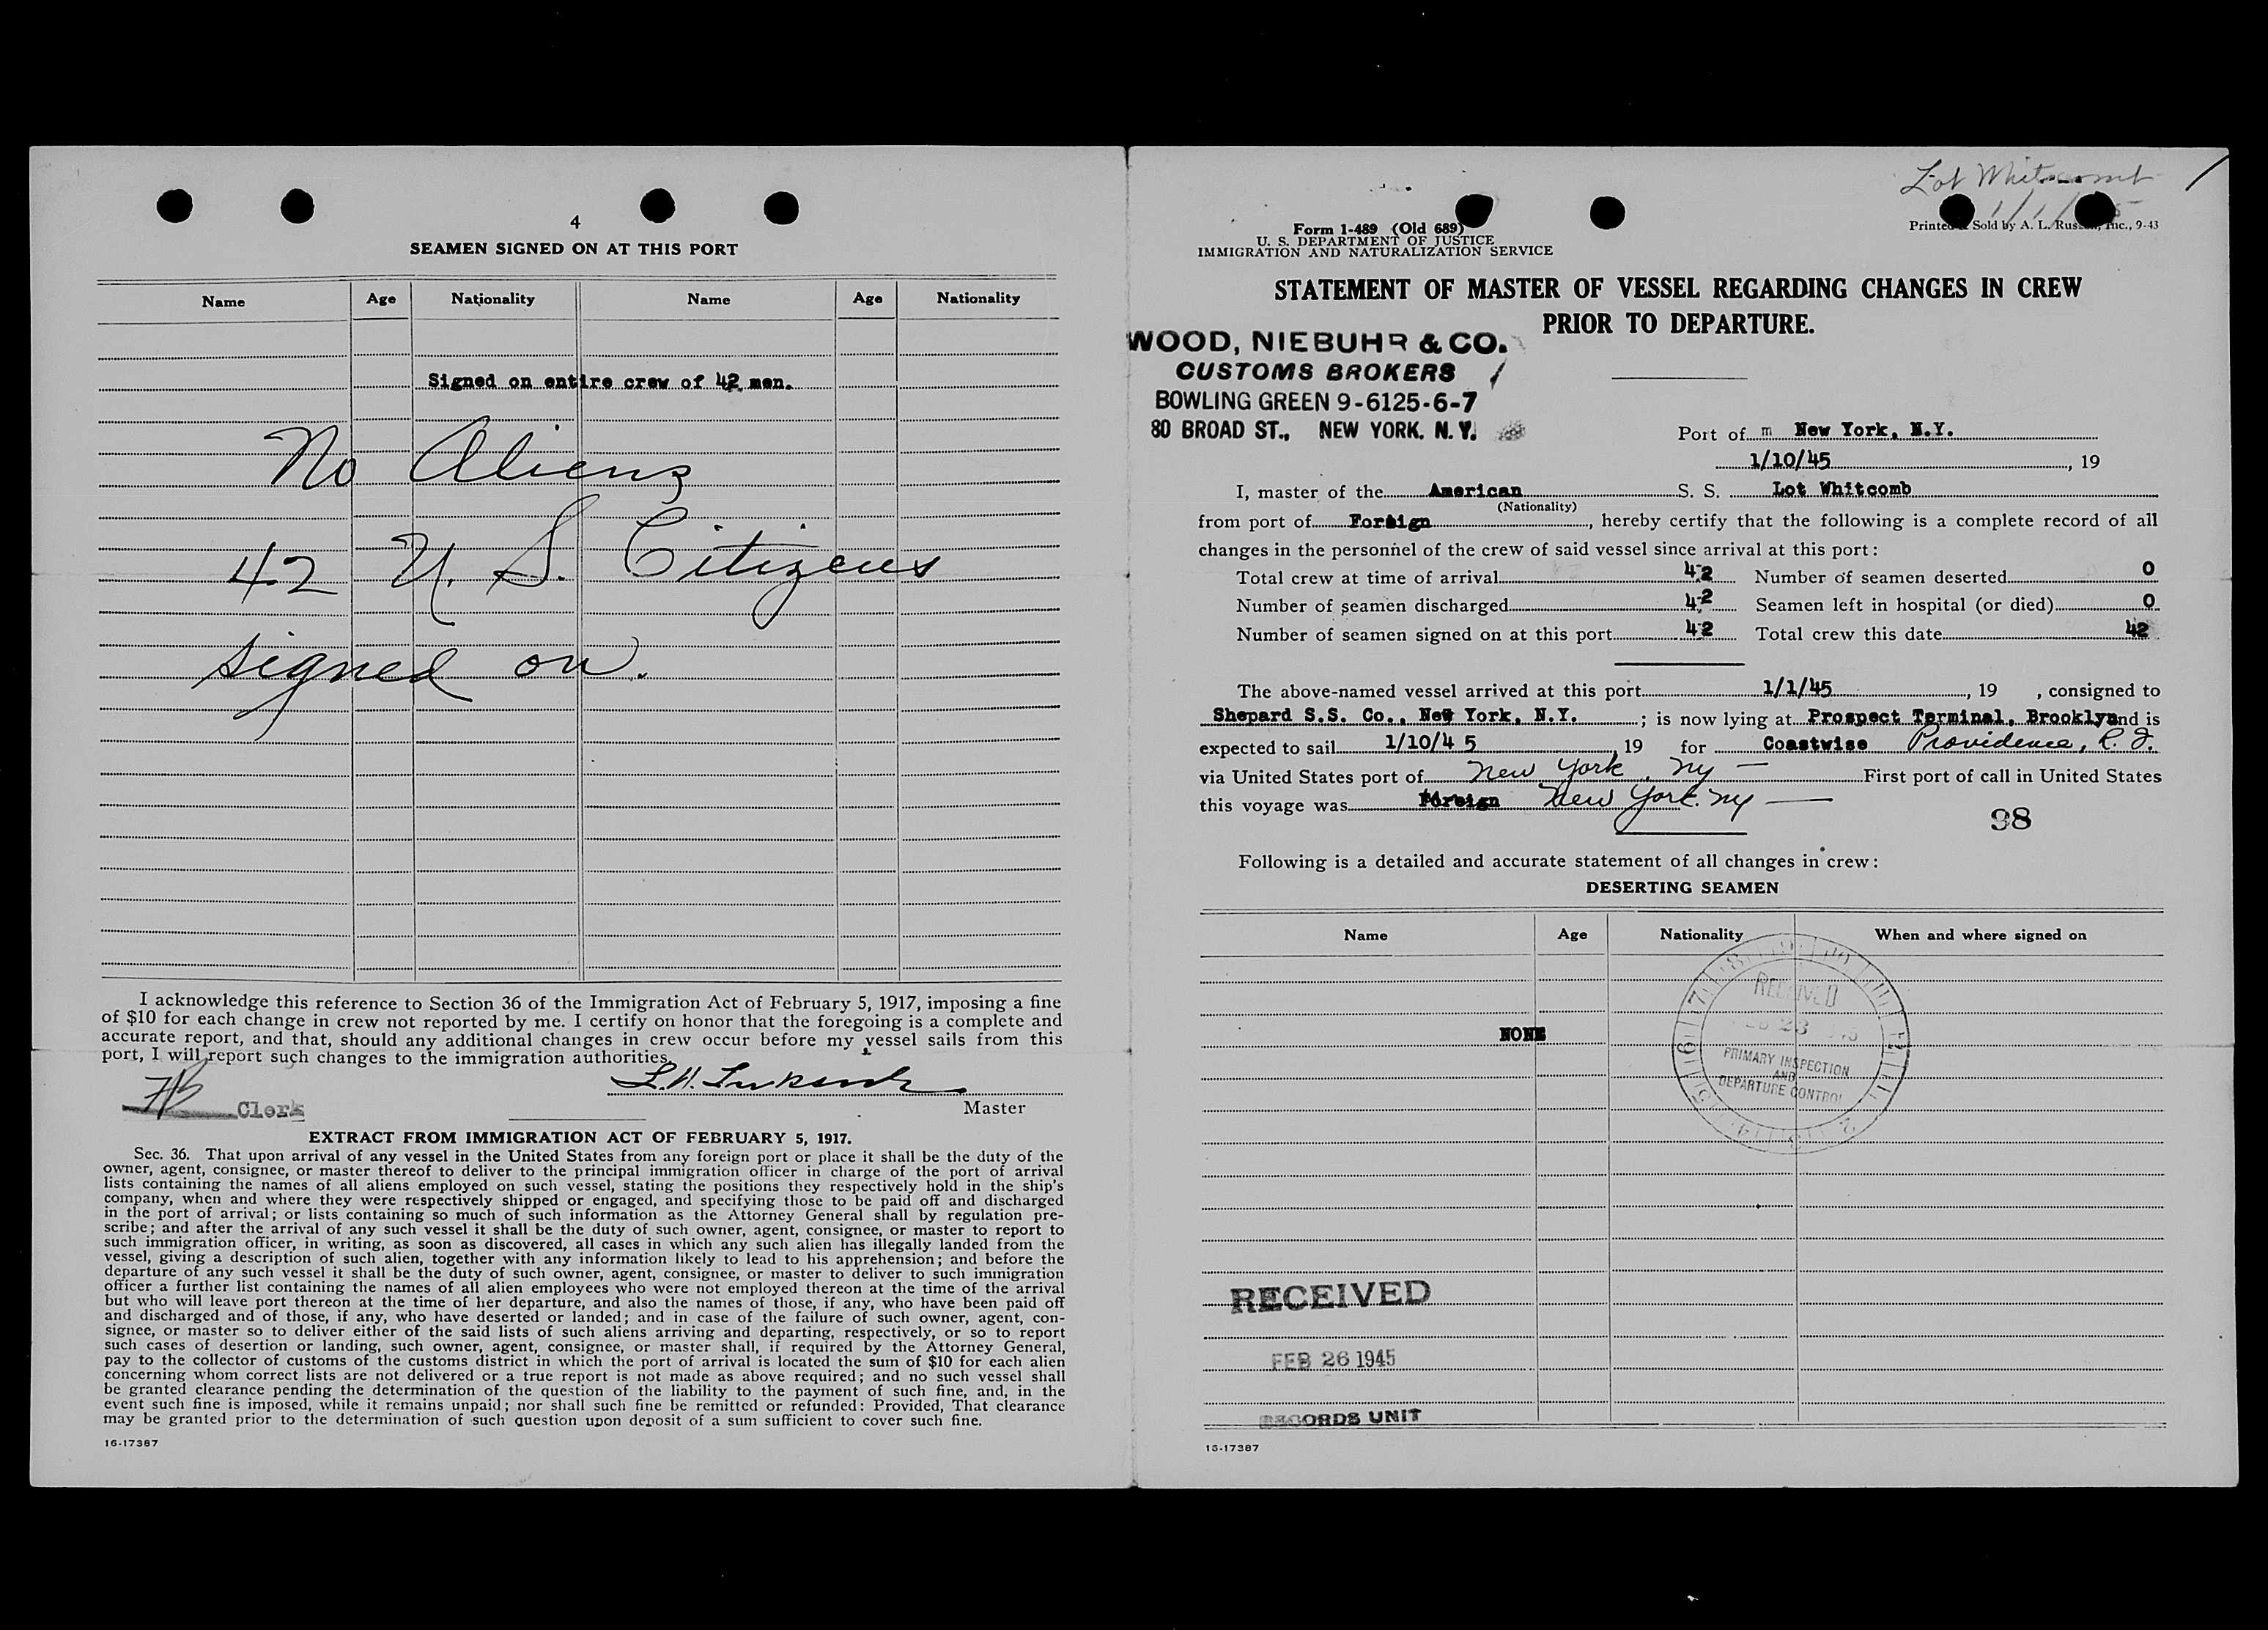 4
SEAMEN SIGNED ON AT THIS PORT
Name Age Nationality Name Age Nationality
Signed on entire crew of 42 men.
No Aliens
42 U. S. Citizens
signed on.
I acknowledge this reference to Section 36 of the Immigration Act of February 5, 1917, imposing a fine
of $10 for each change in crew not reported by me. I certify on honor that the foregoing is a complete and
accurate report, and that, should any additional changes in crew occur before my vessel sails from this
port, I will report such changes to the immigration authorities.
Clerk
Master
EXTRACT FROM IMMIGRATION ACT OF FEBRUARY 5, 1917.
Sec. 36. That upon arrival of any vessel in the United States from any foreign port or place it shall be the duty of the
owner, agent, consignee, or master thereof to deliver to the principal immigration officer in charge of the port of arrival
lists containing the names of all aliens employed on such vessel, stating the positions they respectively hold in the ship's
company, when and where they were respectively shipped or engaged, and specifying those to be paid off and discharged
in the port of arrival; or lists containing so much of such information as the Attorney General shall by regulation pre-
scribe; and after the arrival of any such vessel it shall be the duty of such owner, agent, consignee, or master to report to
such immigration officer, in writing, as soon as discovered, all cases in which any such alien has illegally landed from the
vessel, giving a description of such alien, together with any information likely to lead to his apprehension; and before the
departure of any such vessel it shall be the duty of such owner, agent, consignee, or master to deliver to such immigration
officer a further list containing the names of all alien employees who were not employed thereon at the time of the arrival
but who will leave port thereon at the time of her departure, and also the names of those, if any, who have been paid off
and discharged and of those, if any, who have deserted or landed; and in case of the failure of such owner, agent, con-
signee, or master so to deliver either of the said lists of such aliens arriving and departing, respectively, or so to report
such cases of desertion or landing, such owner, agent, consignee, or master shall, if required by the Attorney General,
pay to the collector of customs of the customs district in which the port of arrival is located the sum of $10 for each alien
concerning whom correct lists are not delivered or a true report is not made as above required; and no such vessel shall
be granted clearance pending the determination of the question of the liability to the payment of such fine, and, in the
event such fine is imposed, while it remains unpaid; nor shall such fine be remitted or refunded: Provided, That clearance
may be granted prior to the determination of such question upon deposit of a sum sufficient to cover such fine.
16-17387
Lot Whitcomb
Form 1-489 (Old 689)
U. S. DEPARTMENT OF JUSTICE
IMMIGRATION AND NATURALIZATION SERVICE
Printed & Sold by A. L. Inc., 9-43
STATEMENT OF MASTER OF VESSEL REGARDING CHANGES IN CREW
PRIOR TO DEPARTURE.
WOOD, NIEBUHR & CO.
CUSTOMS BROKERS
BOWLING GREEN 9-6125-6-7
80 BROAD ST., NEW YORK. N. Y.
Port of m New York, N.Y.
1/10/45, 19
I, master of the American S. S. Lot Whitcomb
(Nationality)
from port of Foreign, hereby certify that the following is a complete record of all
changes in the personnel of the crew of said vessel since arrival at this port:
Total crew at time of arrival 42 Number of seamen deserted 0
Number of seamen discharged 42 Seamen left in hospital (or died) 0
Number of seamen signed on at this port 42 Total crew this date 42
The above-named vessel arrived at this port 1/1/45, 19 , consigned to
Shepard S.S. Co., New York, N.Y. ; is now lying at Prospect Terminal, Brooklyn and is
expected to sail 1/10/4 5, 19 for Coastwise Providence, R. I.
via United States port of New York, NY — First port of call in United States
this voyage was Foreign New York. NY —
98
Following is a detailed and accurate statement of all changes in crew:
DESERTING SEAMEN
Name Age Nationality When and where signed on
NONE
RECEIVED
FEB 23
PRIMARY INSPECTION
AND
DEPARTURE CONTROL
RECEIVED
FEB 26 1945
RECORDS UNIT
16-17387